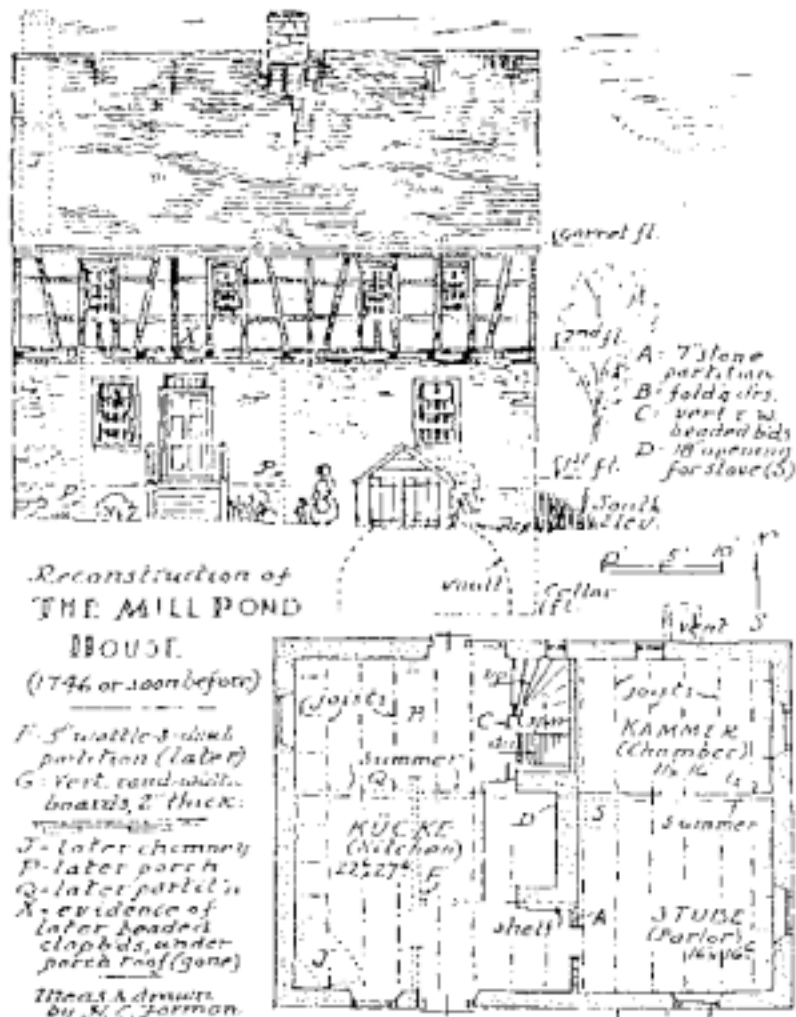 Garret fl.
2nd fl.
A- 7" stone
partition
B- foldg drs.
C- vert r.w.
beaded bds
D- 18" opening
for stove (S)
1st fl.
South
Elev.
P
P
X
J
0' 5' 10'
N
S
Vault
Cellar
fl.
Reconstruction of
THE MILL POND
HOUSE
(1746 or soon before)
F- 5" wattle-&-daub
partition (later)
G- Vert. rand-width
boards, 2" thick.
J- later chimney
P- later porch
Q- later partit'n
X- evidence of
later beaded
clapbds, under
porch roof (gone)
Meas & drawn
by H.C. Forman
Vent
Joists
B
C
up
Summer
Q
KÜCKE
(Kitchen)
D
F
shelf
J
Joists
KAMMER
(Chamber)
S
Summer
A
STUBE
(Parlor)